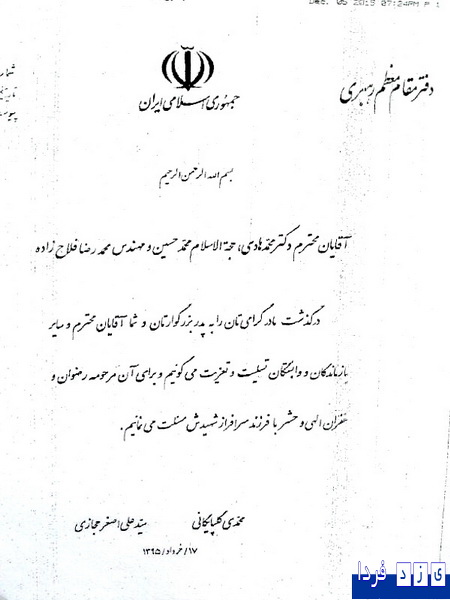 Dec. 05 2015 07:24PM P 1
دفتر مقام معظم رهبری
جمهوری اسلامی ایران
شما
تاریخ
پیوست
بسم الله الرحمن الرحیم
آقایان محترم دکتر محمدهادی، حجةالاسلام محمدحسین و مهندس محمدرضا فلاح زاده
درگذشت مادر گرامی تان را به پدر بزرگوارتان و شما آقایان محترم و سایر
بازماندگان و وابستگان تسلیت و تعزیت می گوئیم و برای آن مرحومه رضوان و
غفران الهی و حشر با فرزند سرافراز شهیدش مسئلت می نمائیم.
محمدی گلپایگانی
سیدعلی اصغر حجازی
۱۷/خرداد/۱۳۹۵
یزد فردا